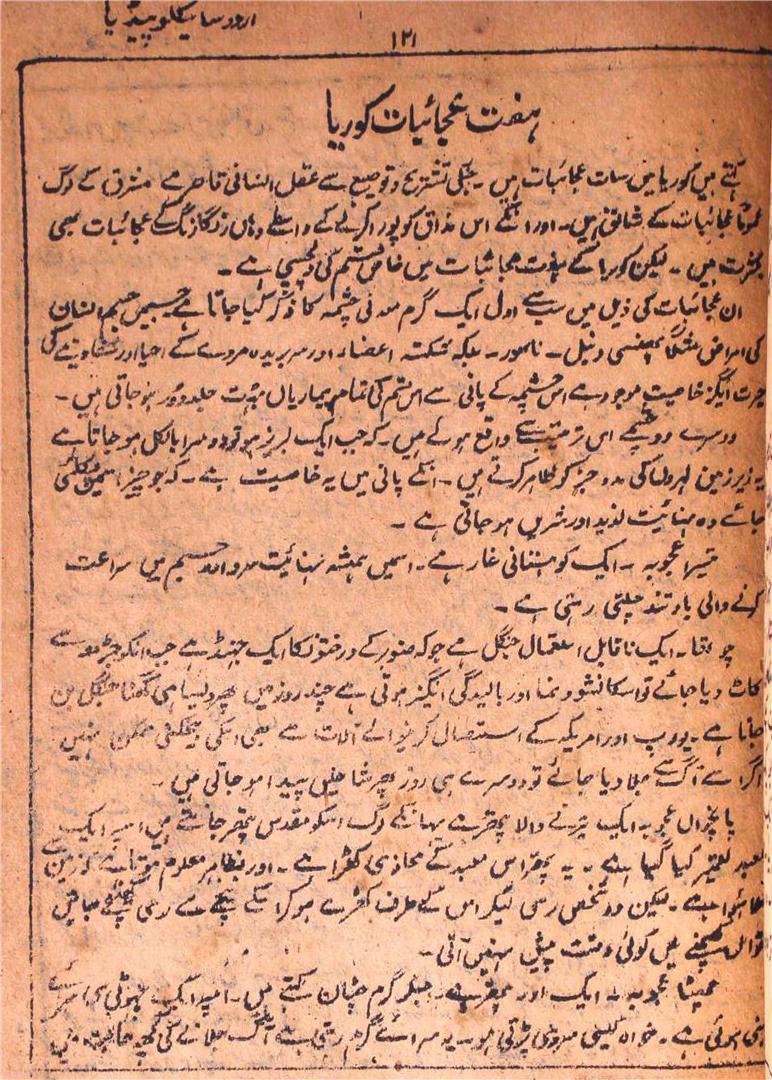 اردو سائیکلو پیڈیا
۱۲۱
ہفت عجائیات کوریا
کہتے ہیں کوریا میں سات عجائبات ہیں۔ جنکی تشریح و توضیع سے عقل انسانی قاصر ہے مشرق کے لوگ
عموماً عجائبات کے شائق ہیں۔ اور انکے اس مذاق کو پورا کرنے کے واسطے وہاں رنگا رنگ کے عجائبات بھی
بکثرت ہیں۔ لیکن کوریا کے ہفت عجائبات میں خاص قسم کی دلچسپی ہے۔
ان عجائبات کی ذیل میں سب سے اول ایک گرم معدنی چشمہ کا ذکر کیا جاتا ہے۔ جسمیں جسم انسان
کی امراض مثلاً پھنسی دنبل۔ ناسور۔ بلکہ شکستہ اعضاء اور سر بریدہ مردے کے احیا اور شفا دینے کی
حیرت انگیز خاصیت موجود ہے اس چشمہ کے پانی سے اس قسم کی تمام بیماریاں بہت جلد دور ہو جاتی ہیں۔
دوسرے دو چشمے اس ترتیب سے واقع ہوئے ہیں۔ کہ جب ایک لبریز ہو تو دوسرا بالکل ہو جاتا ہے
یہ زیر زمین لہروں کی مدوجزر کو ظاہر کرتے ہیں۔ انکے پانی میں یہ خاصیت ہے۔ کہ جو چیز اسمیں
جائے وہ نہائیت لذیذ اور شریں ہو جاتی ہے۔
تیسرا عجوبہ۔ ایک کوہستانی غار ہے۔ اسمیں ہمیشہ نہائیت سرد اور جسم میں سراعت
کرنے والی باد تند چلتی رہتی ہے۔
چوتھا۔ ایک ناقابل استیصال جنگل ہے جو کہ صنوبر کے درختوں کا ایک جھنڈ ہے جب انکو جڑھ سے
کاٹ دیا جائے تو اسکا نشوونما اور بالیدگی انگیز ہوتی ہے چند روز میں پھر ویسا ہی گھنا جنگل بن
جاتا ہے۔ یورپ اور امریکہ کے استیصال کرنیوالے آلات سے بھی اسکی بیخکنی ممکن نہیں
اگر اسے آگ سے جلا دیا جائے تو دوسرے ہی روز پھر شاخیں پیدا ہو جاتی ہیں۔
پانچواں عجوبہ ایک تیرنے والا پتھر ہے یہانکے لوگ اسکو مقدس پتھر جانتے ہیں اسپر ایک
معبد تعمیر کیا گیا ہے۔ یہ پتھر اس معبد کے محاذی کھڑا ہے۔ اور بظاہر معلوم ہوتا ہے کہ زمین
ہوا ہے۔ لیکن دو شخص رسی لیکر اس کے طرف کھڑے ہو کر اسکے نیچے سے رسی کھینچے جائیں
تو اس کھینچنے میں کوئی دقت پیش نہیں آتی۔
چھٹا عجوبہ ۔ ایک اور پتھر ہے۔ جسکو گرم چٹان کہتے ہیں۔ اسپر ایک چھوٹی سی سرائے
بنی ہوئی ہے۔ خواہ کیسی سردی پڑتی ہو۔ یہ سرائے گرم رہتی ہے آگ جلانے کی کچھ حاجت